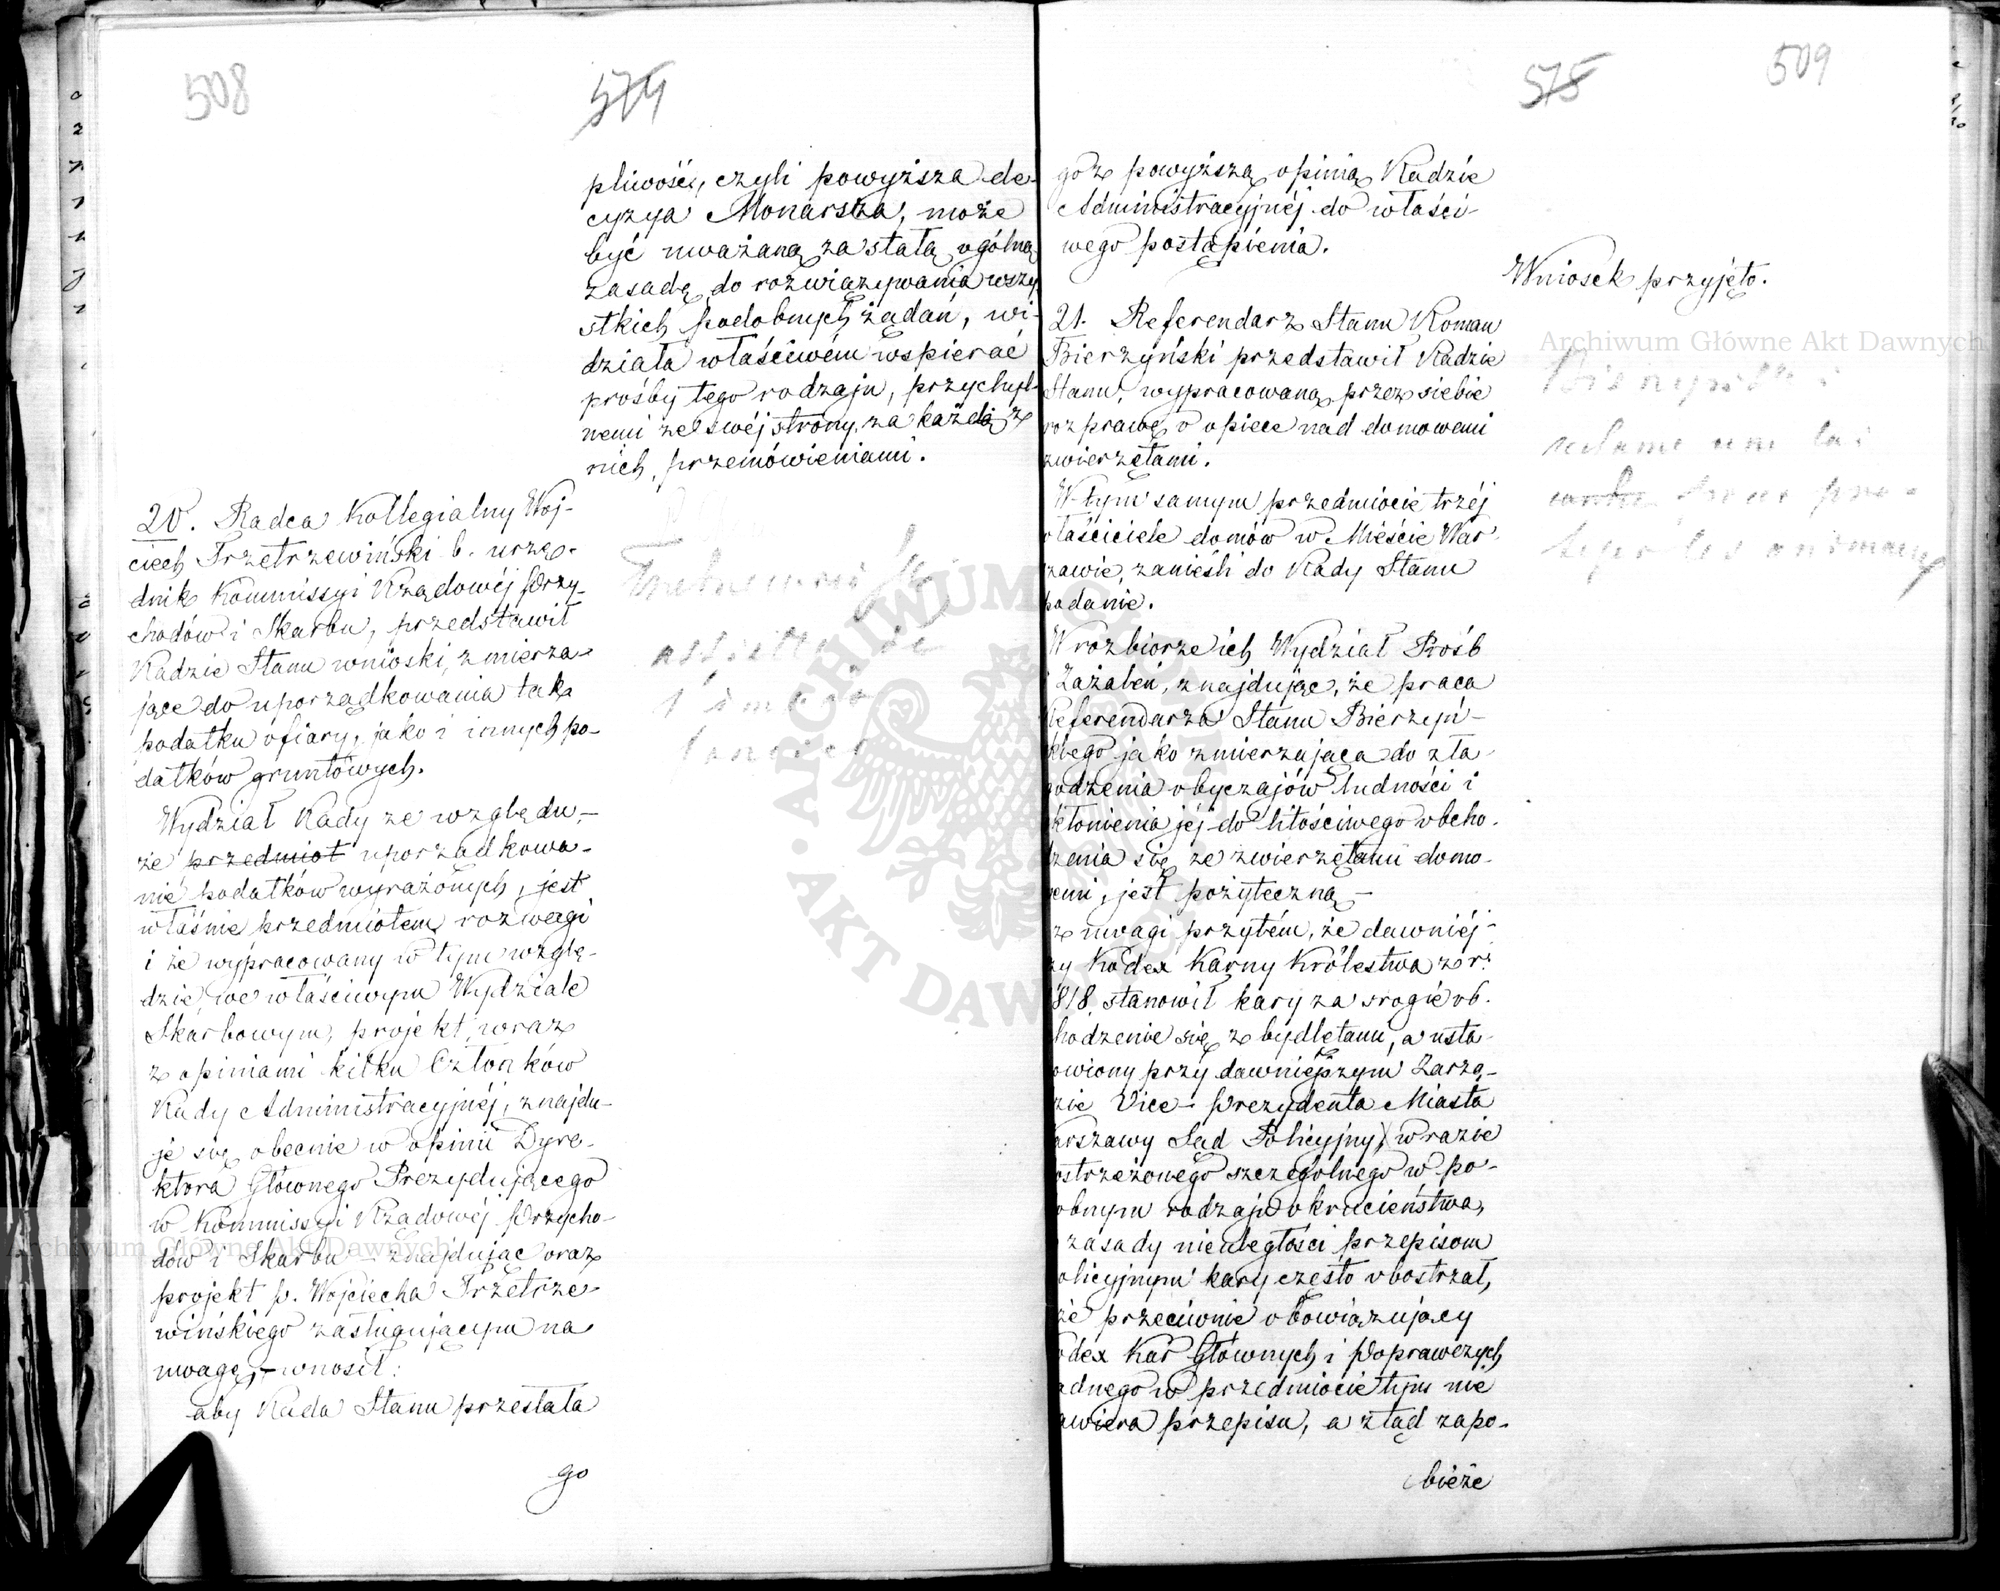 508
574
pliwości, czyli powyższa de-
cyzya Monarsza, może
być uważaną za stałą ogólną
zasadę do rozwiązywania wszy
stkich podobnych żądań, wi-
działa właściwém wspierać
prośby tego rodzaju, przychyl-
nemi ze swéj strony za każdą z
nich, przemówieniami.
20. Radca Kollegialny Woj-
ciech Trzetrzewiński b. urzę-
dnik Kommissyi Rządowéj Przy-
chodów i Skarbu, przedstawił
Radzie Stanu wnioski, zmierza-
jące do uporządkowania tak
podatku ofiary, jako i innych po-
datków gruntowych.
Wydział Rady ze względu,-
że przedmiot uporządkowa-
nie podatków wyrażonych, jest
właśnie przedmiotem rozwagi
i że wypracowany w tym wzglę-
dzie we właściwym Wydziale
Skarbowym, projekt, wraz
z opiniami kilku Członków
Rady Administracyjnéj, znajdu-
je się obecnie w opinii Dyre-
ktora Głównego Prezydującego
w Kommissyi Rządowéj Przycho-
dów i Skarbu - znajdując oraz
projekt p. Wojciecha Trzetrze-
wińskiego zasługującym na
uwagę,- wnosił:
aby Rada Stanu przesłała
go
575
509
go z powyższą opinią Radzie
Administracyjnéj do właści-
wego postąpienia.
Wniosek przyjęto.
21. Referendarz Stanu Roman
Bierzyński przedstawił Radzie
Stanu, wypracowaną przez siebie
rozprawę o opiece nad domowemi
zwierzętami.
W tym samym przedmiocie trzéj
właściciele domów w Mieście War-
szawie, zanieśli do Rady Stanu
podanie.
W rozbiorze ich Wydział Próśb
i Zażaleń, znajdując, że praca
Referendarza Stanu Bierzyń-
skiego jako zmierzająca do zła-
godzenia obyczajów ludności i
skłonienia jéj do litościwego obcho-
dzenia się ze zwierzętami domo-
wemi, jest pożyteczną -
z uwagi przytém, że dawniéj-
szy Kodex Karny Królestwa z r.
1818, stanowił kary za srogie ob-
chodzenie się z bydlętami, a usta-
nowiony przy dawniejszym Zarzą-
dzie Vice-Prezydenta Miasta
Warszawy Sąd Policyjny, w razie
dostrzeżonego szczególnego w po-
dobnym rodzaju okrucieństwa,
z zasady nieuległości przepisom
policyjnym kary często obostrzał,
że przeciwnie obowiązujący
Kodex Kar Głównych i Poprawczych
żadnego w przedmiocie tym nie
zawiera przepisu, a ztąd zapo-
bieże
Archiwum Główne Akt Dawnych
Archiwum Główne Akt Dawnych
ARCHIWUM GŁÓWNE
AKT DAWNYCH